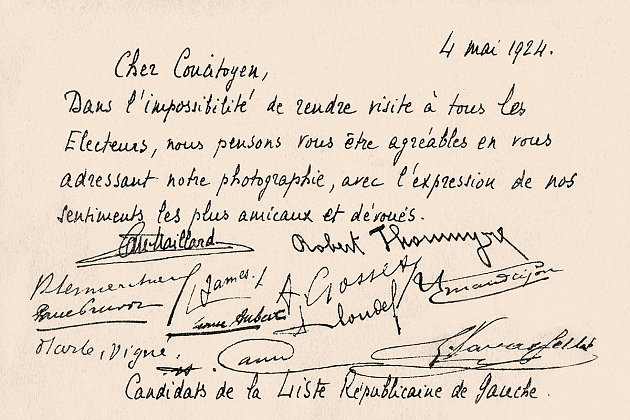 4 mai 1924.
Cher Concitoyen,
Dans l'impossibilité de rendre visite à tous les
Electeurs, nous pensons vous être agréables en vous
adressant notre photographie, avec l'expression de nos
sentiments les plus amicaux et dévoués.
Maillard Robert Thoumyre
James A. Gosset
Louis Aubert
Vigné
Candidats de la Liste Républicaine de Gauche.